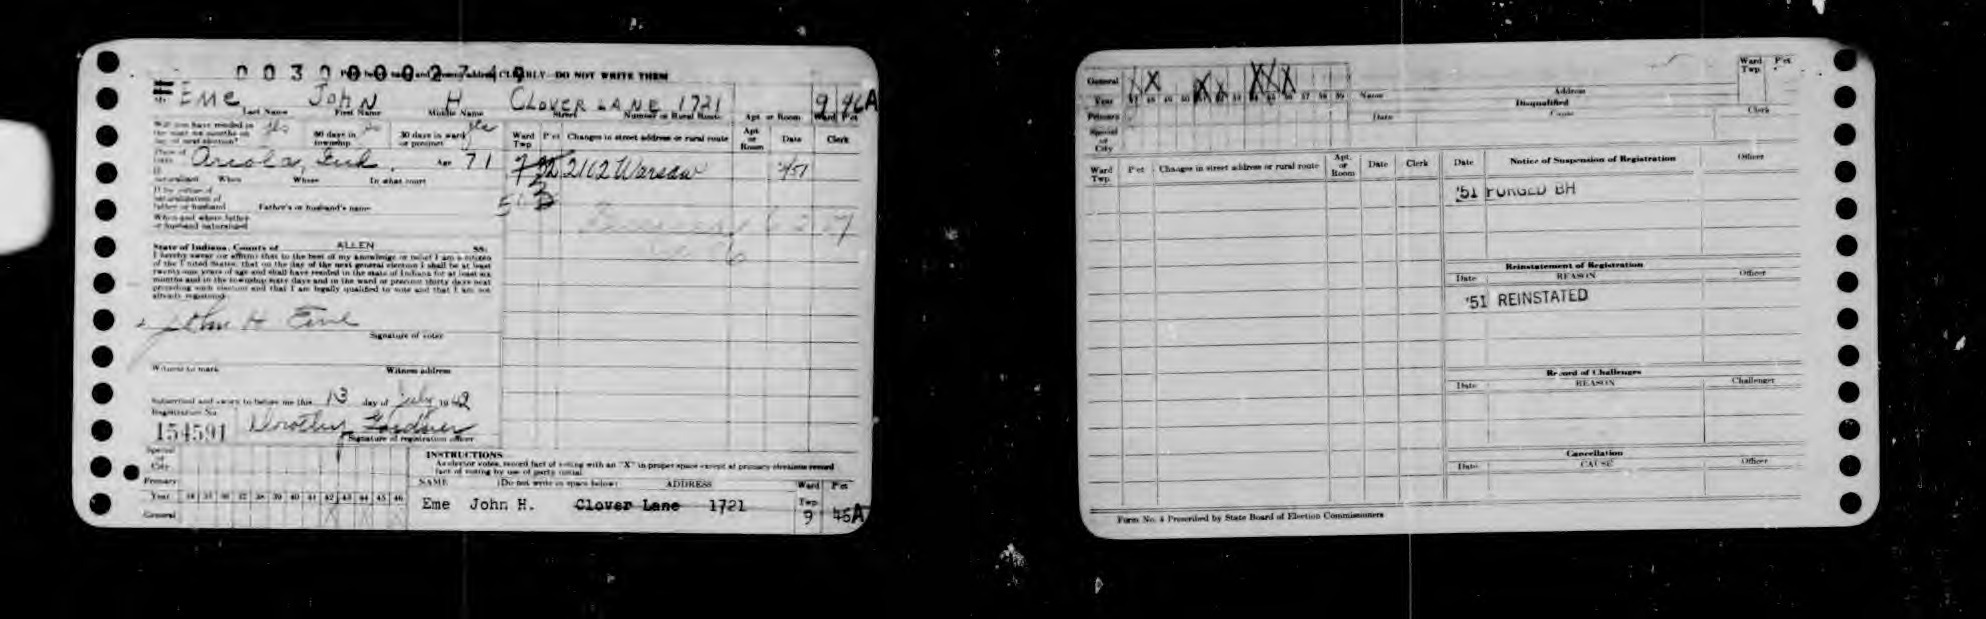 Eme John H Clover Lane 1721 9 46A
Last Name First Name Middle Name Street Number or Rural Route Apt or Room Ward Pct
Will you have resided in the state six months on day of next election? yes 60 days in township 30 days in ward or precinct yes
Ward Twp. Pct Changes in street address or rural route Apt. or Room Date Clerk
Place of birth Arcola, Ind. Age 71
2112 Warsaw
If naturalized When Where In what court
If by virtue of naturalization of father or husband Father's or husband's name
When and where father or husband naturalized
State of Indiana, County of ALLEN SS:
I hereby swear (or affirm) that to the best of my knowledge or belief I am a citizen
of the United States, that on the day of the next general election I shall be at least
twenty-one years of age and shall have resided in the state of Indiana for at least six
months and in the township sixty days and in the ward or precinct thirty days next
preceding such election and that I am legally qualified to vote and that I am not
already registered.
John H Eme
Signature of voter
Witness to mark Witness address
Subscribed and sworn to before me this 13 day of July 1942
Registration No.
154591 Dorothy Gardner
Signature of registration officer
Special or City
Primary
Year 34 35 36 37 38 39 40 41 42 43 44 45 46
General
INSTRUCTIONS
As elector votes, record fact of voting with an "X" in proper space except at primary elections record
fact of voting by use of party initial.
NAME (Do not write in space below) ADDRESS Ward Pct
Eme John H. Clover Lane 1721 Twp. 9 46A
General X X X X X X X
Year 47 48 49 50 51 52 53 54 55 56 57 58 59
Primary
Special or City
Name Address
Disqualified
Date Cause Clerk
Ward Twp. Pct
Ward Twp. Pct Changes in street address or rural route Apt. or Room Date Clerk
Date Notice of Suspension of Registration Officer
'51 PURGED BH
Reinstatement of Registration
Date REASON Officer
'51 REINSTATED
Record of Challenges
Date REASON Challenger
Cancellation
Date CAUSE Officer
Form No. 4 Prescribed by State Board of Election Commissioners